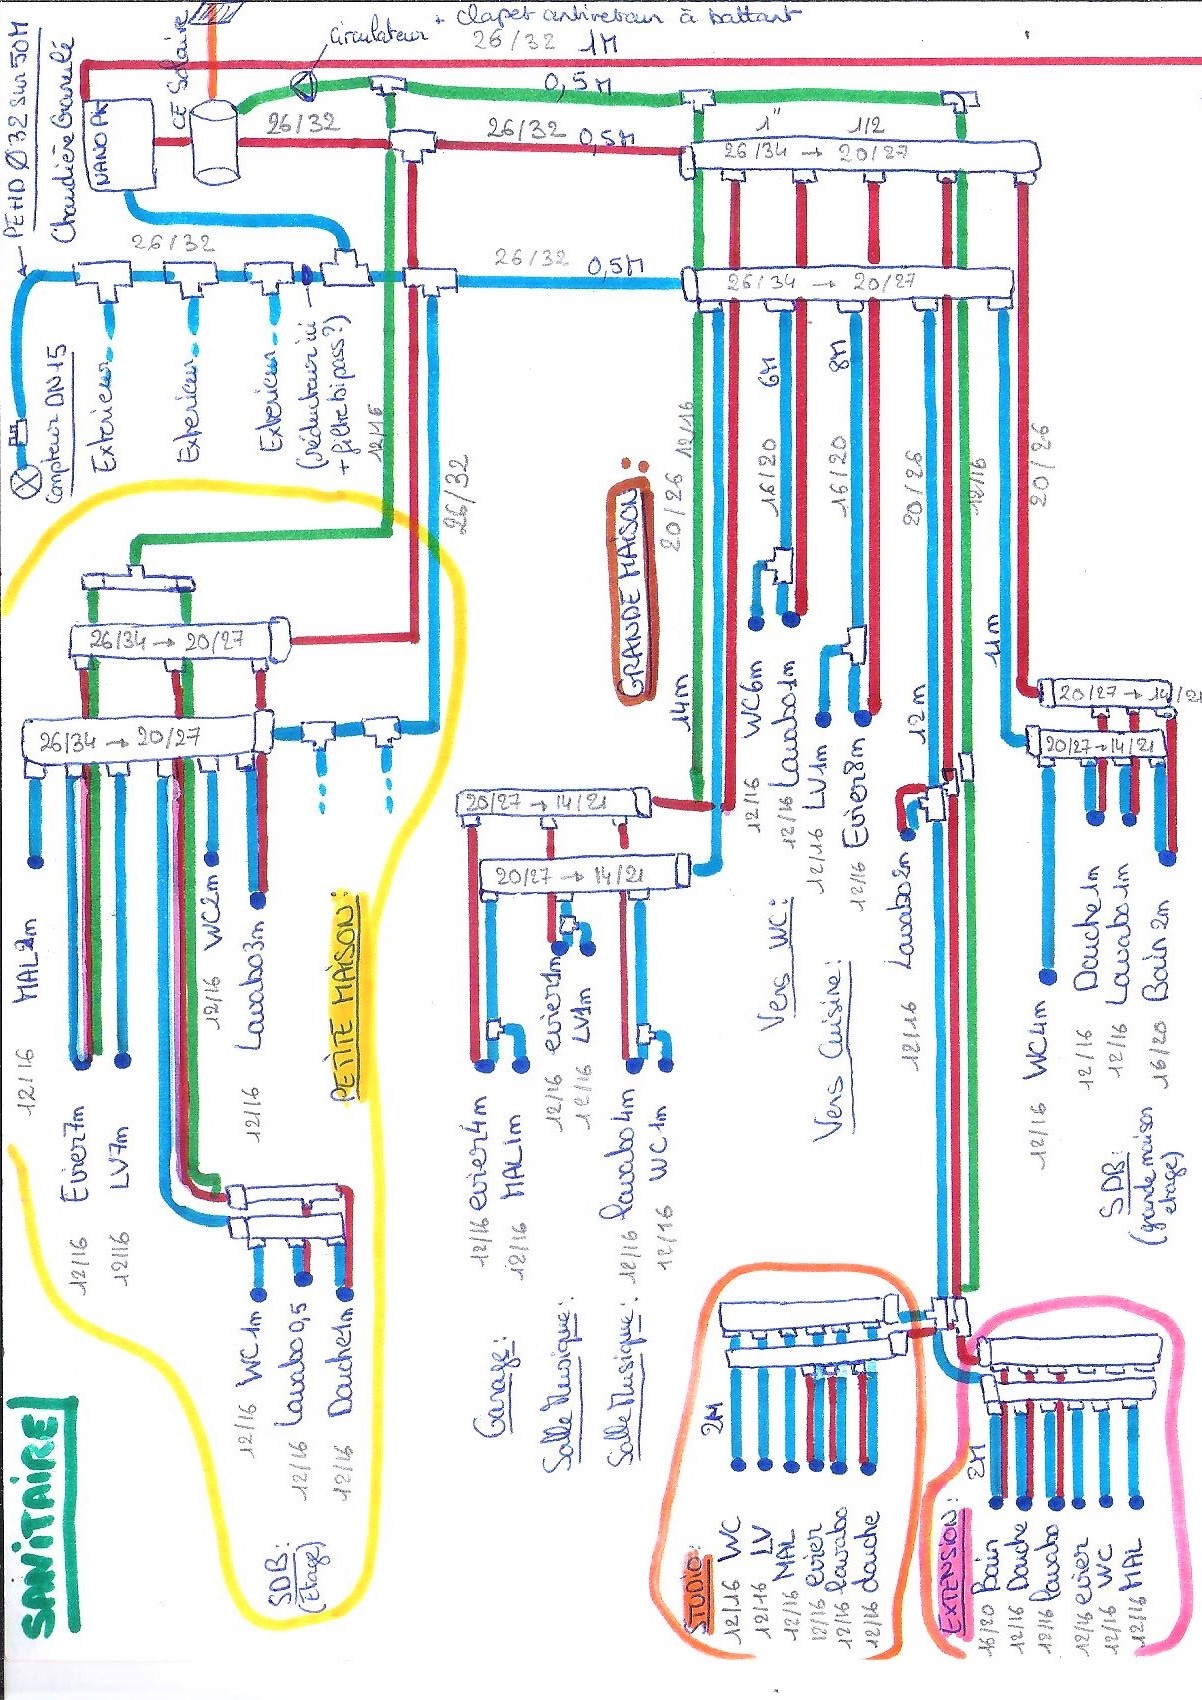 + clapet antiretour à battant
circulateur
26/32 1M
0,5M
PEHD Ø 32 sur 50M
Chaudière Granulé
NANO PK
CE Solaire
26/32
26/32
0,5M
1" 1/2
26/34 → 20/27
26/32
26/32
0,5M
26/34 → 20/27
Compteur DN15
Exterieur
Exterieur
Exterieur
(réducteur ici
+ filtre bipass?)
12/16
26/32
GRANDE MAISON:
20/26
12/16
14m
16/20
6M
16/20
8M
20/26
12m
12/16
20/26
11m
26/34 → 20/27
26/34 → 20/27
20/27 → 14/21
20/27 → 14/21
20/27 → 14/21
20/27 → 14/21
12/16 WC6m
12/16 Lavabo1m
12/16 LV1m
12/16 Evier8m
12/16 Lavabo2m
Vers WC:
Vers Cuisine:
12/16 MAL2m
12/16 Evier7m
12/16 LV7m
12/16 WC2m
12/16 Lavabo3m
PETITE MAISON:
12/16 WC1m
12/16 Lavabo0,5
12/16 Douche1m
SDB:
(Etage)
12/16 evier4m
12/16 MAL1m
12/16 evier1m
12/16 LV1m
12/16 lavabo4m
12/16 WC1m
Garage:
Salle Musique:
Salle Musique:
12/16 WC4m
12/16 Douche1m
12/16 Lavabo1m
16/20 Bain2m
SDB:
(grande maison
etage)
SANITAIRE
2M
STUDIO:
12/16 WC
12/16 LV
12/16 MAL
12/16 evier
12/16 lavabo
12/16 douche
2M
EXTENSION:
16/20 Bain
12/16 Douche
12/16 lavabo
12/16 evier
12/16 WC
12/16 MAL